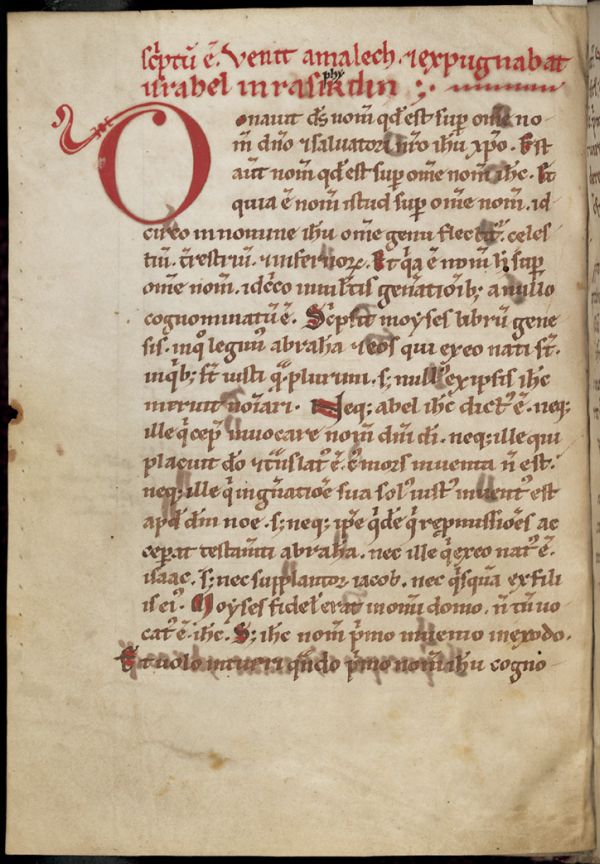 sc̄ptū ē. Venit amalech. ⁊ expugnabat
israhel in rasiphydin
Donauit ds̄ nom̄ qd̄ est sup̄ om̄e no-
m̄ dn̄o ⁊ saluatori nr̄o ih̄u xp̄o. Est
aūt nom̄ qd̄ est sup̄ om̄e nom̄ ih̄c. Et
quia ē nom̄ istud sup̄ om̄e nom̄. id
circo in nomine ih̄u om̄e genu flectit᷑. celes
tiū. t̄restriū. ⁊ infernoꝝ. Et q̄a ē nom̄ h̄ sup̄
om̄e nom̄. idc̄co in multis gen̄ationib; a nullo
cognominatū ē. Sc̄psit moyses librū gene
sis. in q̊ legim᷒ abraha ⁊ eos qui ex eo nati st̄.
in q̄b; st̄ iusti q̄ plurimi. s; null᷒ ex ipsis ih̄c
meruit noīari. Neq; abel ih̄c dict᷒ ē. neq;
ille q̄ cep̄ inuocare nom̄ dn̄i dī. neq; ille qui
placuit dō ⁊ t̄nslat᷒ ē. ē mors inuenta n̄ est.
neq; ille q̄ in gn̄atioē sua sol᷒ iust᷒ inuent᷒ est
apd̄ dm̄ noe. s; neq; ip̄e q̄dē q̄ repmissiōes ac
cep̄at testam̄ti abraha. nec ille q̄ ex eo nat᷒ ē.
isaac. s; nec supplantor iacob. nec q̄sq̄ua ex fili
is ei᷒. Moyses fidel᷒ erat in om̄i domo. n̄ tn̄ uo
cat᷒ ē ih̄c. S; ih̄c nom̄ p̄mo inuenio in exodo.
Et uolo intueri qn̄do p̄mo nom̄ ih̄u cogno